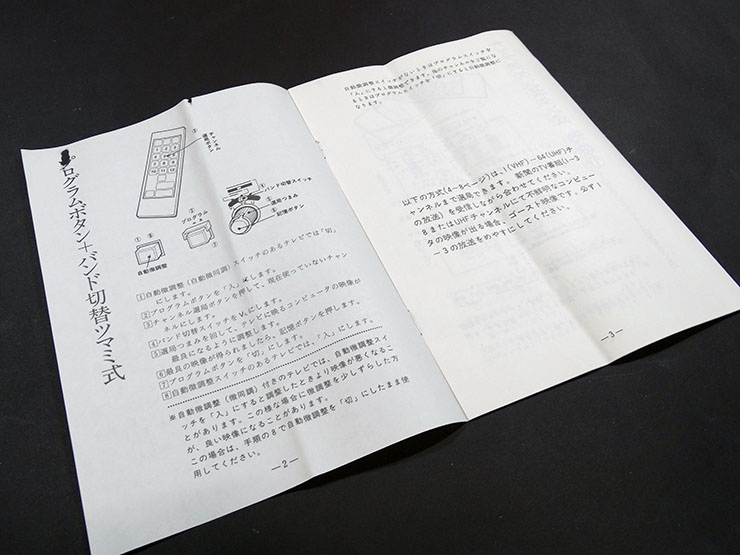 プログラムボタン+バンド切替ツマミ式
チャンネル
選局ボタン
バンド切替スイッチ
選局つまみ
記憶ボタン
プログラム
自動微調整
1自動微調整(自動微同調)スイッチのあるテレビでは「切」
にします。
2プログラムボタンを「入」にします。
3チャンネル選局ボタンを押して、現在使っていないチャン
ネルにします。
4バンド切替スイッチをVLにします。
5選局つまみを回して、テレビに映るコンピュータの映像が
最良になるように調整します。
6最良の映像が得られましたら、記憶ボタンを押します。
7プログラムボタンを「切」にします。
8自動微調整スイッチのあるテレビでは、「入」にします。
※自動微調整(微同調)付きのテレビでは、自動微調整スイ
ッチを「入」にすると調整したときより映像が悪くなるこ
とがあります。この様な場合に微調整を少しずらした方
が、良い映像になることがあります。
この場合は、手順の8で自動微調整を「切」にしたまま使
用してください。
—2—
自動微調整スイッチがないときはプログラムスイッチを
「入」にすると微調整できます。他のチャンネルをご覧にな
るときはプログラムスイッチを「切」にすると自動微調整に
なります。
以下の方式(4~8ページ)は、1(VHF)~64(UHF)チ
ャンネルまで選局できます。新聞のTV番組(1~3
の放送)を受信しながら合わせてください。
8またはUHFチャンネルにて不鮮明なコンピュー
タの映像が出る場合、ゴースト映像です。必ず1
~3の放送をめやすにしてください。
—3—